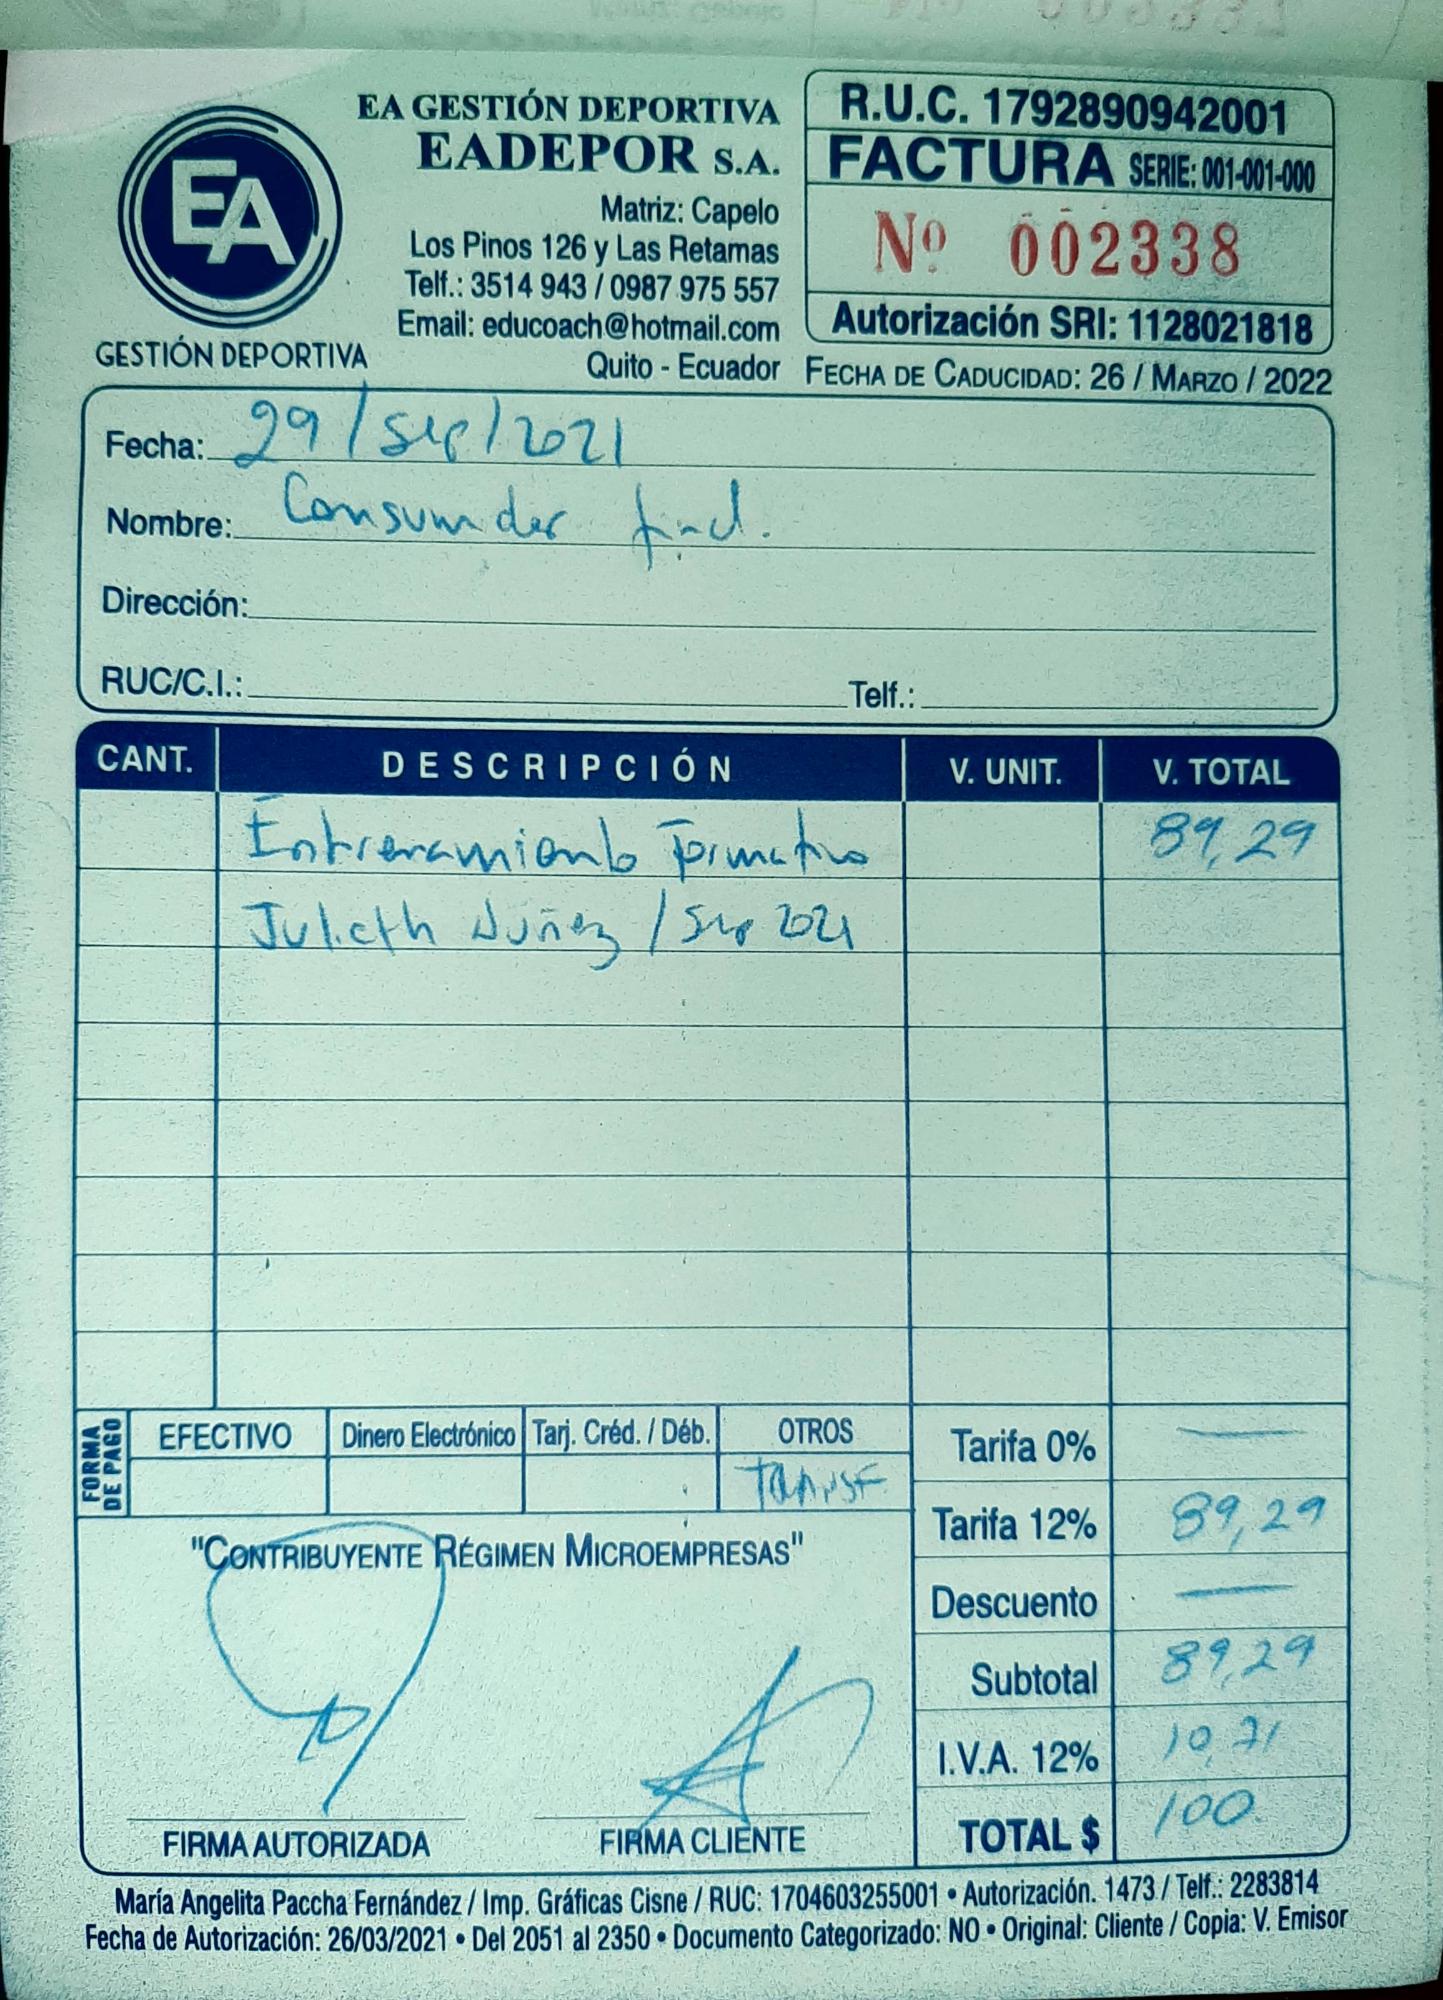 EA GESTIÓN DEPORTIVA
EADEPOR S.A.
Matriz: Capelo
Los Pinos 126 y Las Retamas
Telf.: 3514 943 / 0987 975 557
Email: educoach@hotmail.com
Quito - Ecuador
EA
GESTIÓN DEPORTIVA
R.U.C. 1792890942001
FACTURA SERIE: 001-001-000
Nº 002338
Autorización SRI: 1128021818
FECHA DE CADUCIDAD: 26 / MARZO / 2022
Fecha: 29/Sep/2021
Nombre: Consumidor final.
Dirección:
RUC/C.I.: Telf.:
CANT. DESCRIPCIÓN V. UNIT. V. TOTAL
Entrenamiento Formativo 89,29
Julieth Núñez / Sep 2021
FORMA DE PAGO
EFECTIVO Dinero Electrónico Tarj. Créd. / Déb. OTROS
Transf
Tarifa 0% —
Tarifa 12% 89,29
Descuento —
Subtotal 89,29
I.V.A. 12% 10,71
TOTAL $ 100
"CONTRIBUYENTE RÉGIMEN MICROEMPRESAS"
FIRMA AUTORIZADA FIRMA CLIENTE
María Angelita Paccha Fernández / Imp. Gráficas Cisne / RUC: 1704603255001 • Autorización. 1473 / Telf.: 2283814
Fecha de Autorización: 26/03/2021 • Del 2051 al 2350 • Documento Categorizado: NO • Original: Cliente / Copia: V. Emisor